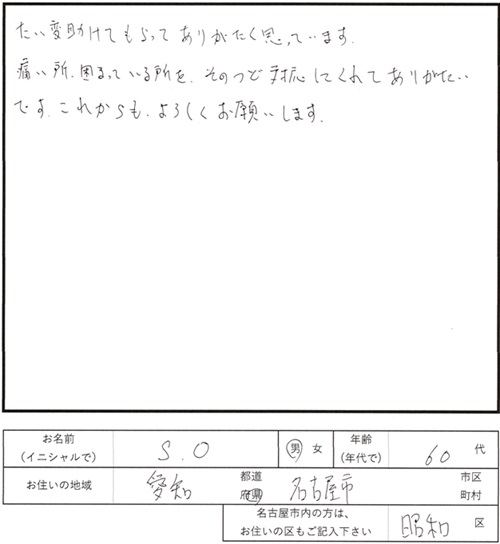 たい変助けてもらってありがたく思っています.
痛い所.困まっている所を.そのつど対応してくれてありがたい
です.これからも.よろしくお願いします.
お名前
(イニシャルで)
S.O
男 女
年齢
(年代で)
60 代
お住いの地域
愛知
都道
府県
名古屋市
市区
町村
名古屋市内の方は、
お住いの区もご記入下さい
昭和 区